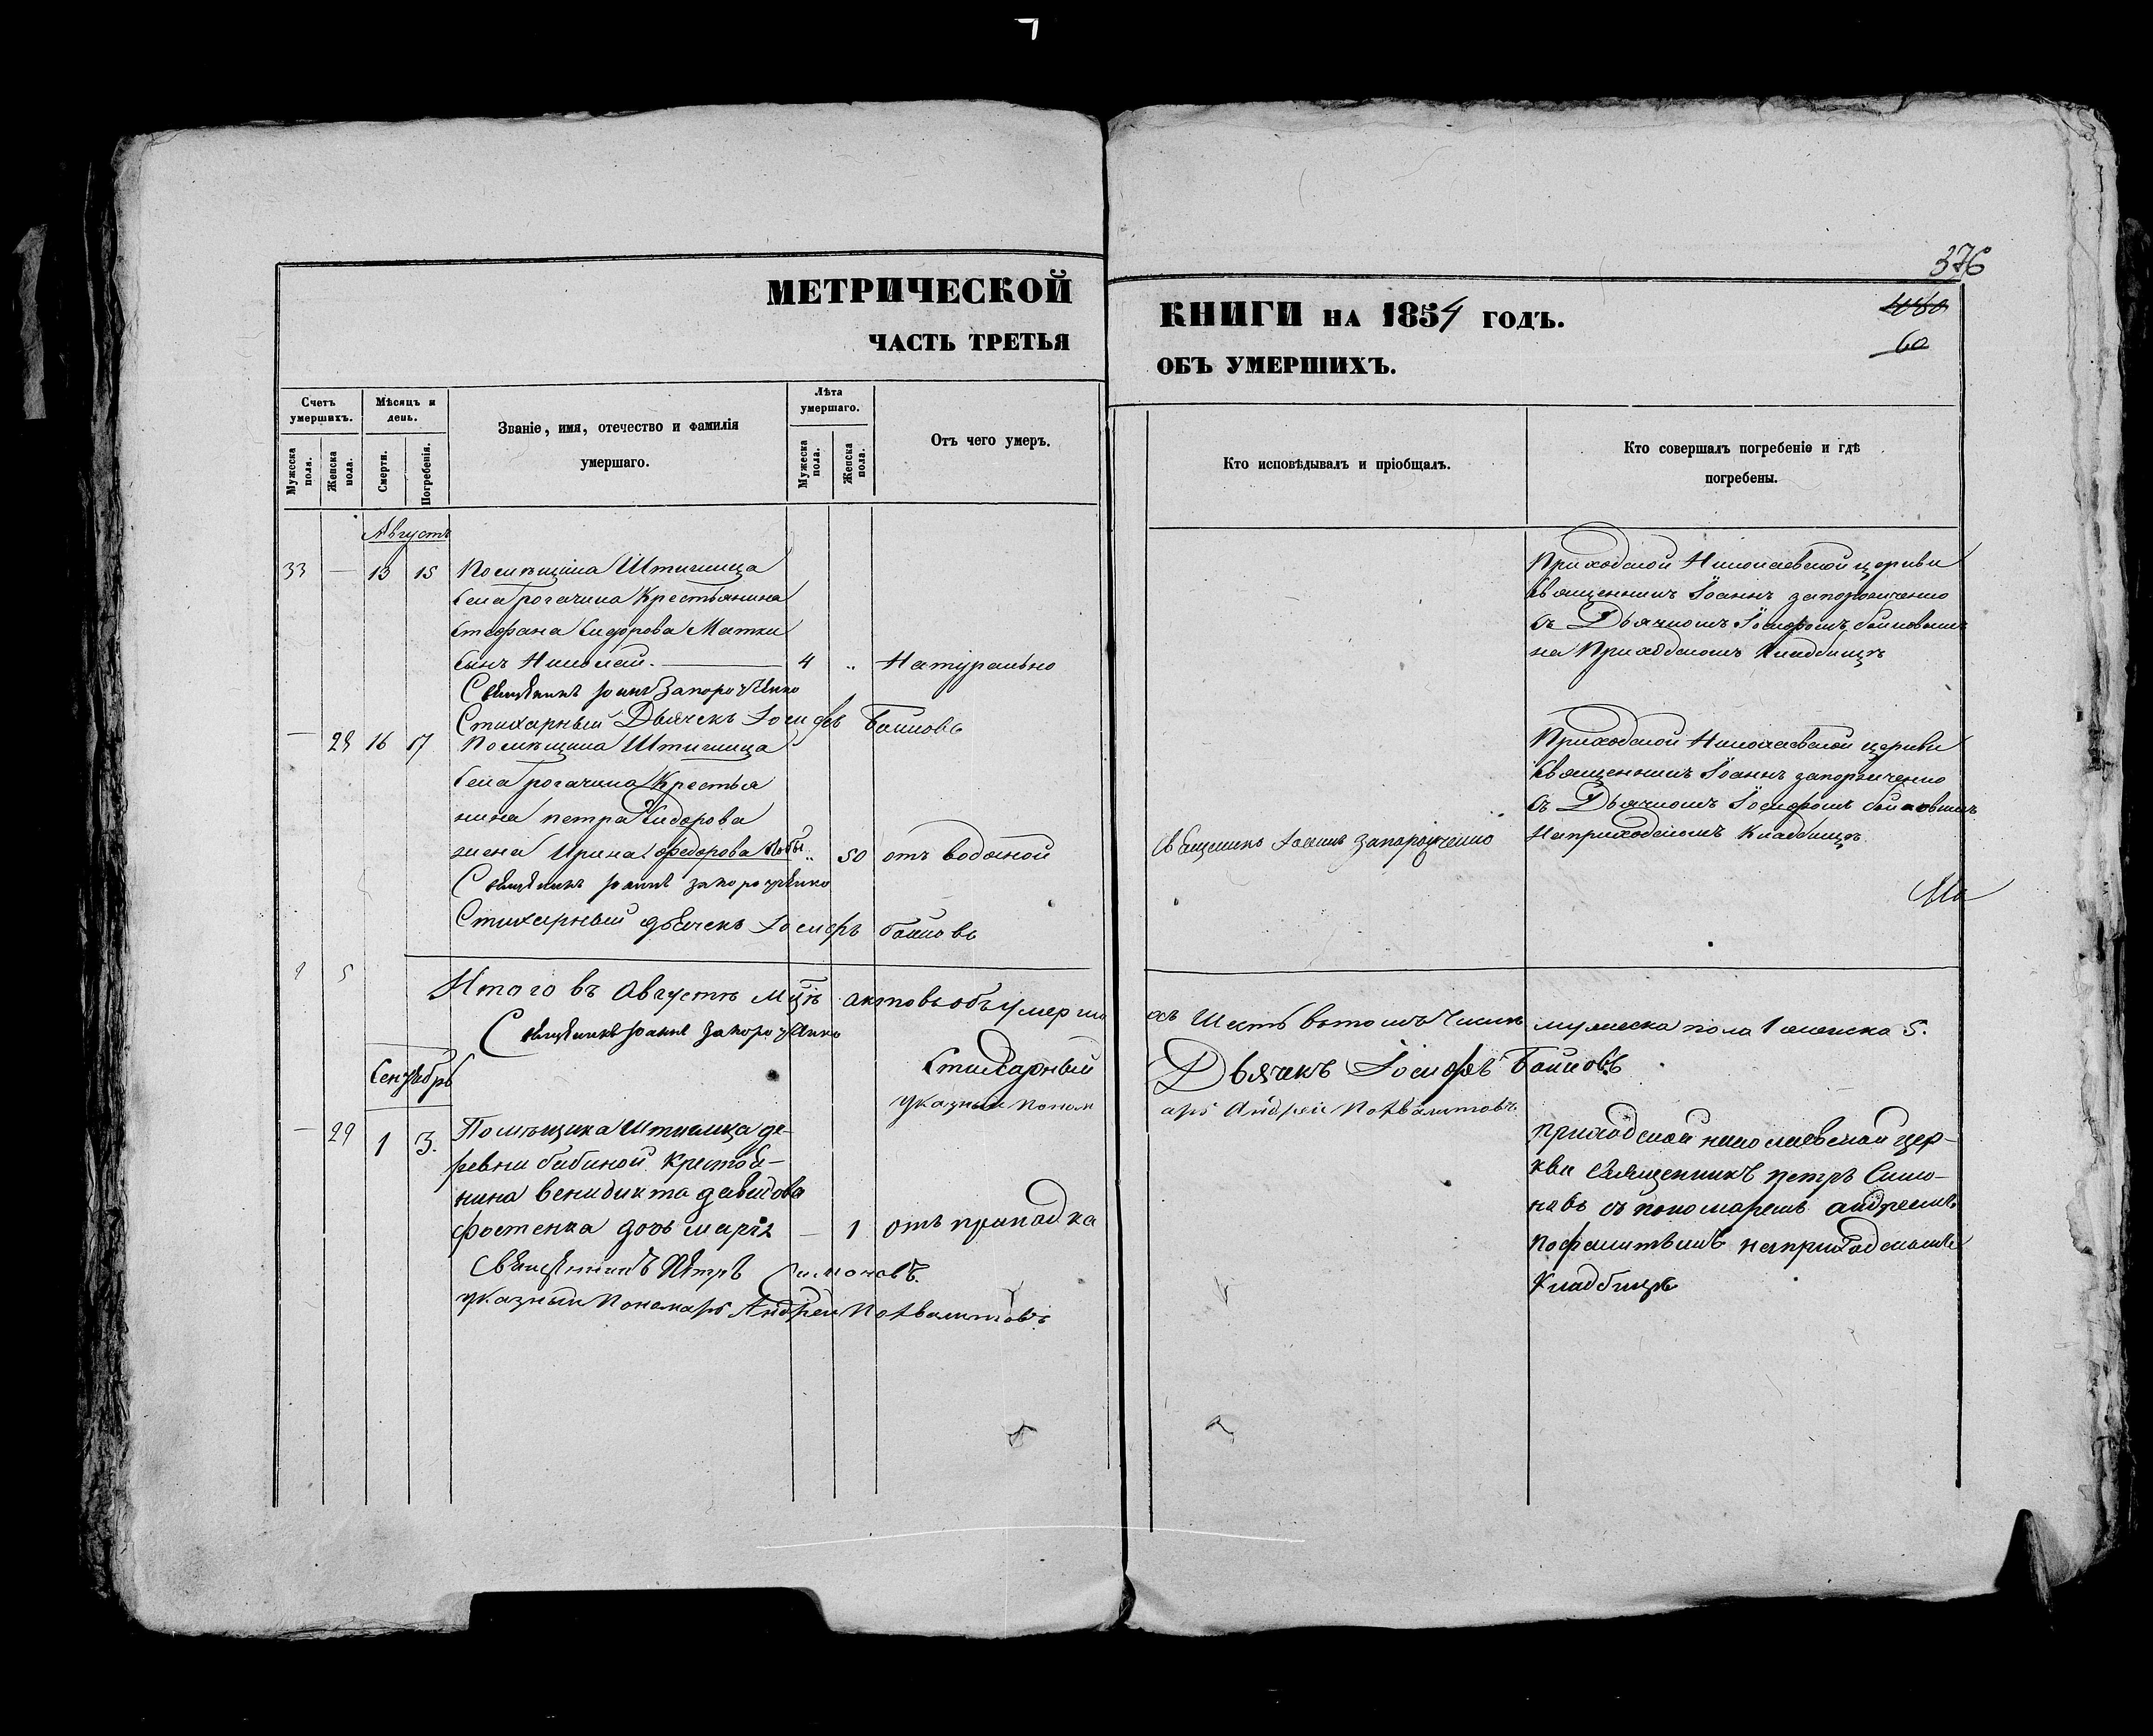 376
МЕТРИЧЕСКОЙ
КНИГИ НА 1854 ГОДЪ.
60
ЧАСТЬ ТРЕТЬЯ
ОБЪ УМЕРШИХЪ.
Счетъ умершихъ.
Мѣсяцъ и день.
Званіе, имя, отечество и фамилія умершаго.
Лѣта умершаго.
Отъ чего умеръ.
Кто исповѣдывалъ и пріобщалъ.
Кто совершалъ погребеніе и гдѣ погребены.
Мужеска пола.
Женска пола.
Смерти.
Погребенія.
Мужеска пола.
Женска пола.
Августъ
33 — 13 15 Помѣщика
села Рогачика Крестьянина
Стефана Сидорова Матки
сынъ Николай. — 4 „ Натурально
Священникъ Іоаннъ Запорожченко
Стихарный Дьячекъ Іосифъ Байковъ
Приходской Николаевской церкви
Священникъ Іоаннъ Запорожченко
съ Дьячкомъ Іосифомъ Байковымъ
на Приходскомъ Кладбищѣ
— 28 16 17 Помѣщика
села Рогачика Крестья
нина Петра Сидорова
жена Ирина Федорова „ 50 отъ водяной
Священникъ Іоаннъ Запорожченко
Стихарный дьячекъ Іосифъ Байковъ
Священникъ Іоаннъ Запорожченко
Приходской Николаевской церкви
Священникъ Іоаннъ Запорожченко
съ Дьячкомъ Іосифомъ Байковымъ
На приходскомъ Кладбищѣ
1 5
Итого въ Августѣ м-цѣ актовъ объ умерши
хъ Шесть въ томъ Числѣ мужеска пола 1 женска 5.
Священникъ Іоаннъ Запорожченко
Стихарный Дьячекъ Іосифъ Байковъ
указный Поном
арь Андрей Похвалитовъ
Сентябрь
— 29 1 3. Помѣщика де-
ревни Бабиной Крестья-
нина Венидикта Давидова
Фостенка дочь Марія — 1 отъ припадка
Священникъ Петръ Симоновъ.
указный Пономарь Андрей Похвалитовъ
приходской николаевской цер-
кви Священникъ Петръ Симо-
новъ съ пономаремъ андреемъ
на приходскомъ
Кладбищѣ